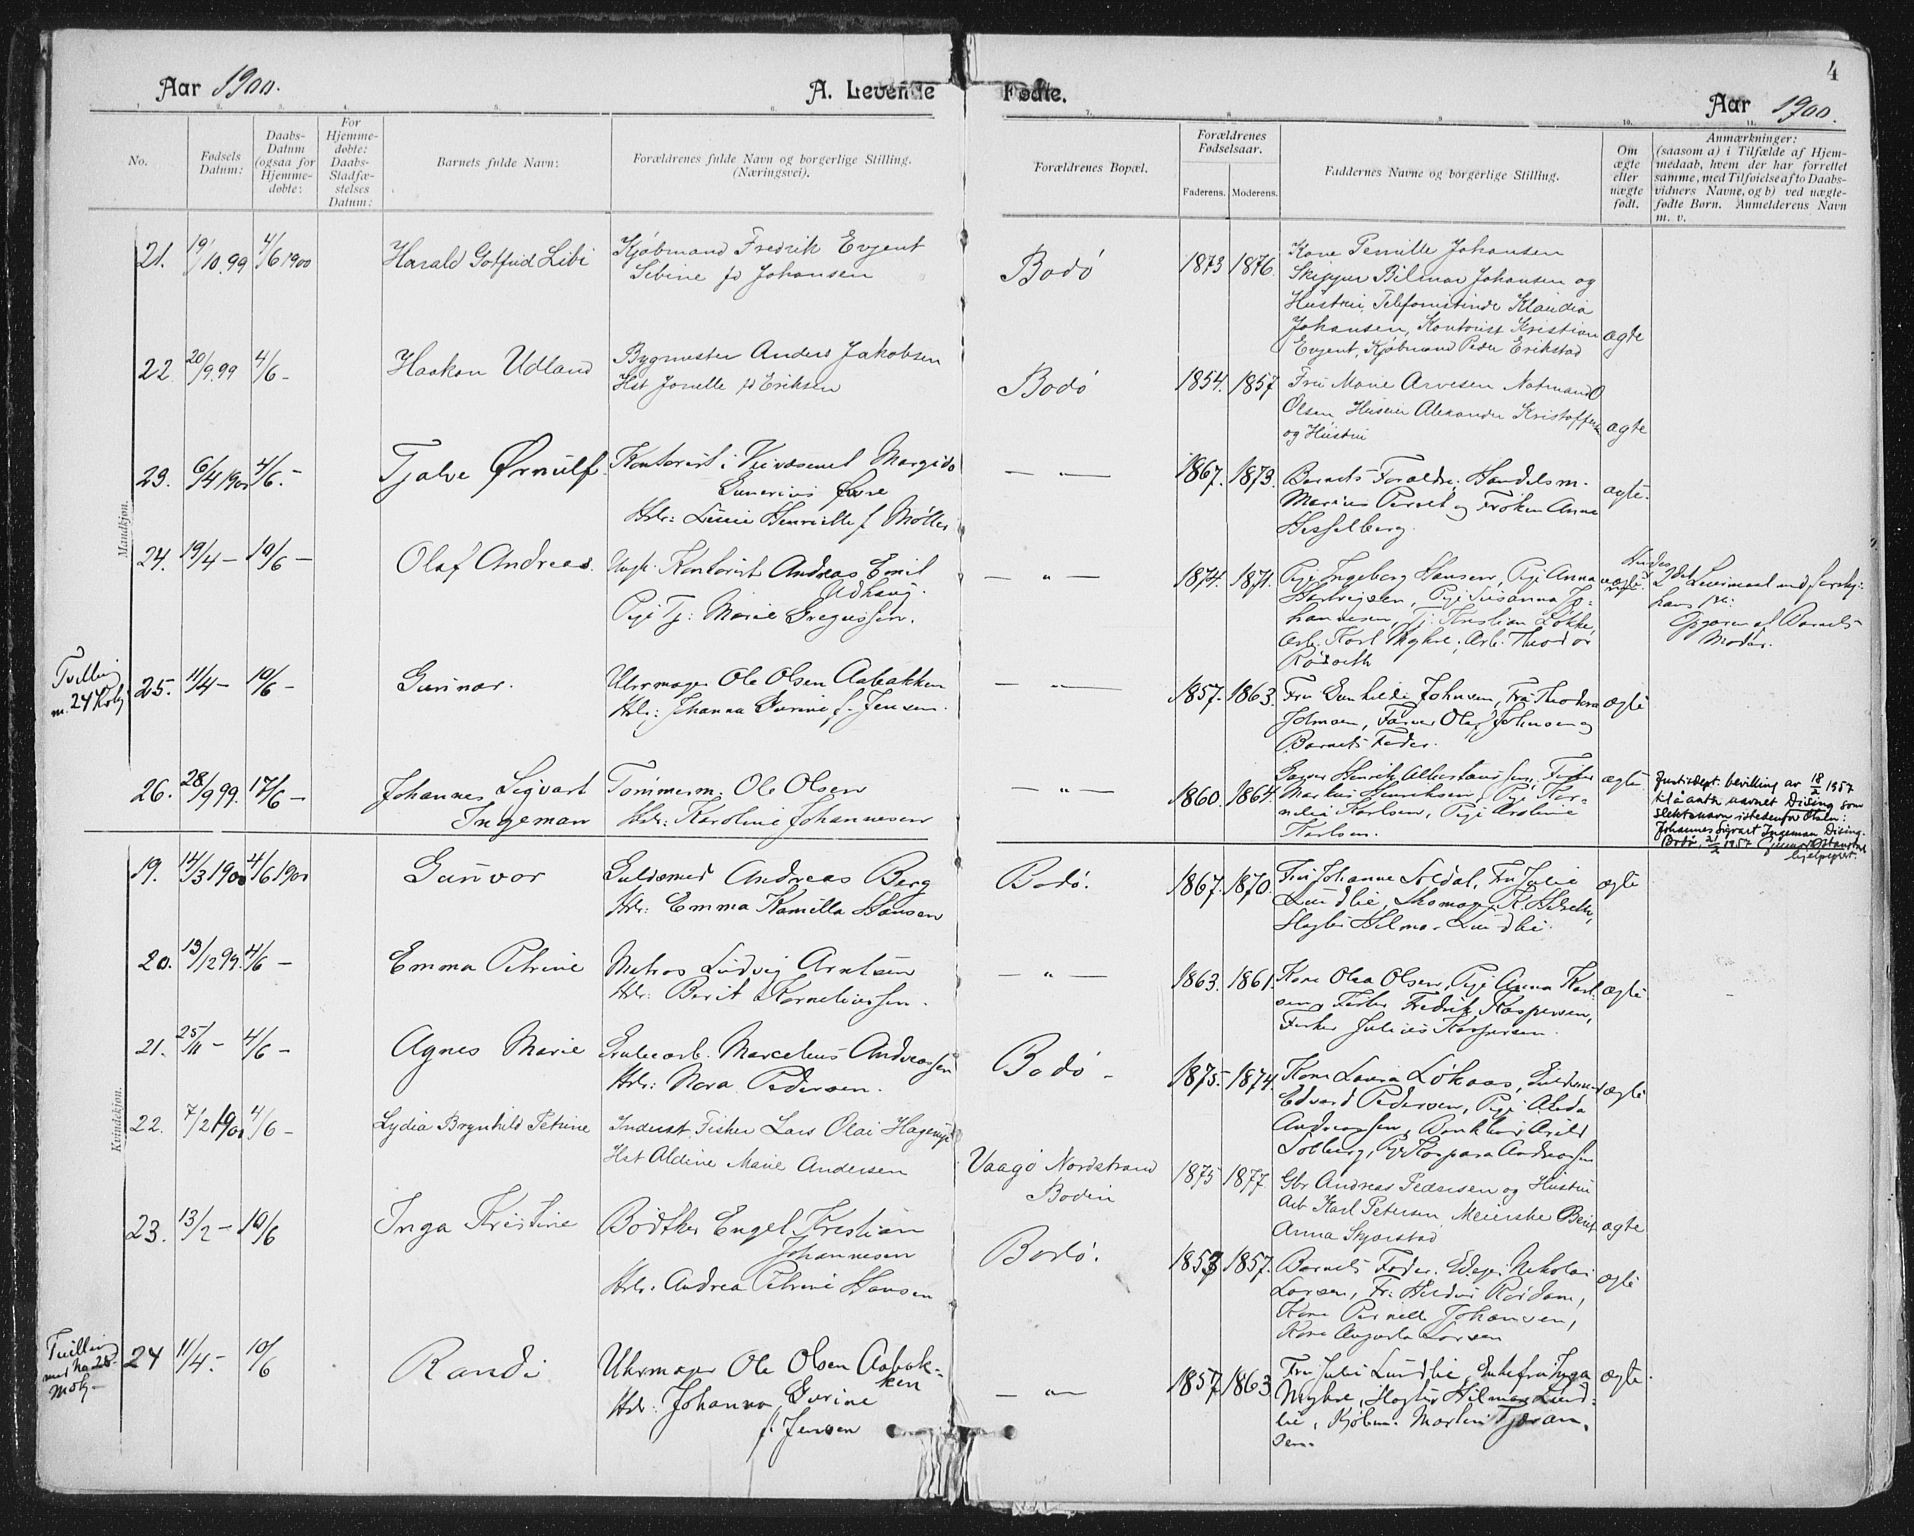 4
Aar 1900.
A. Levende Fødte.
Aar 1900.
1. 2. 3. 4. 5. 6. 7. 8. 9. 10. 11.
No.
Fødsels Datum:
Daabs-Datum (ogsaa for Hjemmedøbte:
For Hjemmedøbte: Daabs-Stadfæstelses Datum:
Barnets fulde Navn:
Forældrenes fulde Navn og borgerlige Stilling. (Næringsvei).
Forældrenes Bopæl.
Forældrenes Fødselsaar.
Faderens. Moderens.
Faddernes Navne og borgerlige Stilling.
Om ægte eller uægte født.
Anmærkninger:
(saasom a) i Tilfælde af Hjemmedaab, hvem der har forrettet samme, med Tilføielse af to Daabsvidners Navne, og b) ved uægtefødte Børn. Anmelderens Navn m. v.
Mandkjøn.
21. 19/10.99 4/6 1900 Harald Gotfred Libi
Kjøbmand Fredrik Evjent
Sebine fd Johansen
Bodø
1873 1876
Kone Pernille Johansen
Skipper Hilmar Johansen og
Hustru, Telefonistinde Klaudia
Johansen, Kontorist Kristian
Evjent, Kjøbmand Peder Erikstad
ægte
22 20/9.99 4/6 - Haakon Udland
Bygmester Anders Jakobsen
Hst Jonelle fd Eriksen
Bodø
1854. 1857
Fru Marie Arvesen Notmand O
Olsen Huseier Alexander Kristoffersen
og Hustru
ægte
23. 6/4 1900 4/6.- Tjalve Ørnulf
Kontorist i Veivæsenet Margido
Øvre
Hstr: Henriette f. Møller
— " —
1867. 1873.
Barnets Forældre, Handelsm.
Marius og Frøken Anna
Hesselberg.
ægte.
24. 19/4 - 10/6 - Olaf Andreas.
Ungk. Kontorist Andreas Emil
Pige Tj: Marie Gregussen.
— " —
1874. 1871.
Pige Ingeborg Hansen, Pige Anna
Hartvigsen, Pige Susanna Jo-
hansen, Tj. Kristian Løkke,
Arb. Karl Myhre, Arb. Theodor
uægte
2det Leiermaal med forskj:
Opgaven af Barnets
Moder.
Tvilling
m. 24 Kvkj
25. 11/4 - 10/6 - Gunnar.
Uhrmager Ole Olsen Aabakken
Hstr: Johanna Gurine f. Jensen.
— " —
1857. 1863.
Fru Gunhilde Johnsen, Fru Theodora
Farver Olaf Johnsen og
Barnets Fader.
ægte
26. 28/9 99. 17/6 - Johannes Sigvart
Ingeman
Tømmerm: Ole Olsen
Hstr: Karoline Johannesen
— " —
1860. 1864.
Gaardbr Henrik Albertsen, Fisker
Markus Henriksen, Pige Kor-
nelia Karlsen, Pige Karoline
Karlsen.
ægte
Justisdept. bevilling av 18/2 1957
til å anta navnet Dising som
slektsnavn istedenfor Olsen:
Johannes Sigvart Ingeman Dising.
Bodø, 21/2 1957
hjelpeprest.
Kvindekjøn.
19. 14/3 1900 4/6 1900 Gunvor
Guldsmed Andreas Berg
Hstr: Emma Kamilla Hansen
Bodø.
1867. 1870.
Fru Johanne Soldal, Fru Julie
Lundlie, Skomager K. Hildreth,
Hilmar Lundlie.
ægte
20. 13/12 99. 4/6 - Emma Petrine
Matros Ludvig Arntsen
Hstr: Berit Korneliussen.
— " —
1863. 1861.
Kone Olaa Olsen, Pige Anna Karl-
sen, Fisker Fredrik Kaspersen,
Fisker Julius Kaspersen.
ægte
21. 25/11 - 4/6 - Agnes Marie
Grubearb. Marcelius Andreassen
Hstr: Nora Pedersen.
Bodø -
1875. 1874.
Kone Laura Løkaas, Guldsmed
Edvard Pedersen, Pige Alida
Andreassen, Arild
Solberg, Pige Kaspara Andreassen
ægte
22. 7/2 1900 4/6 - Lydia Brynhild Petrine
Inderst Fisker Lars Olai Hagen
Hst Aldine Marie Andersen
Vaagø Nordstrand
Bodin
1875 1877
Gbr Andreas Pedersen og Hustru
Arb Karl Petersen, Meierske Berit
Anna Skjørstad
ægte
23. 13/2 - 10/6 Inga Kristine
Bødtker Engel Kristian
Johannesen
Hstr. Andrea Petrine Hansen
Bodø.
1853 1857.
Barnets Fader. Nikolai
Larsen, Fr: Røsdam,
Kone Pernille Johansen,
Kone Augusta Larsen
ægte
Tvilling
med No 25
Mkj -
24 11/4 - 10/6 Randi
Uhrmager Ole Olsen Aabak-
ken
Hstr: Johanna Gurine
f. Jensen
— " —
1857. 1863
Fru Julie Lundlie, Enkefru Inga
Myhre, Hilmar Lund-
lie, Kjøbm. Martin Tjeran-
sen.
ægte